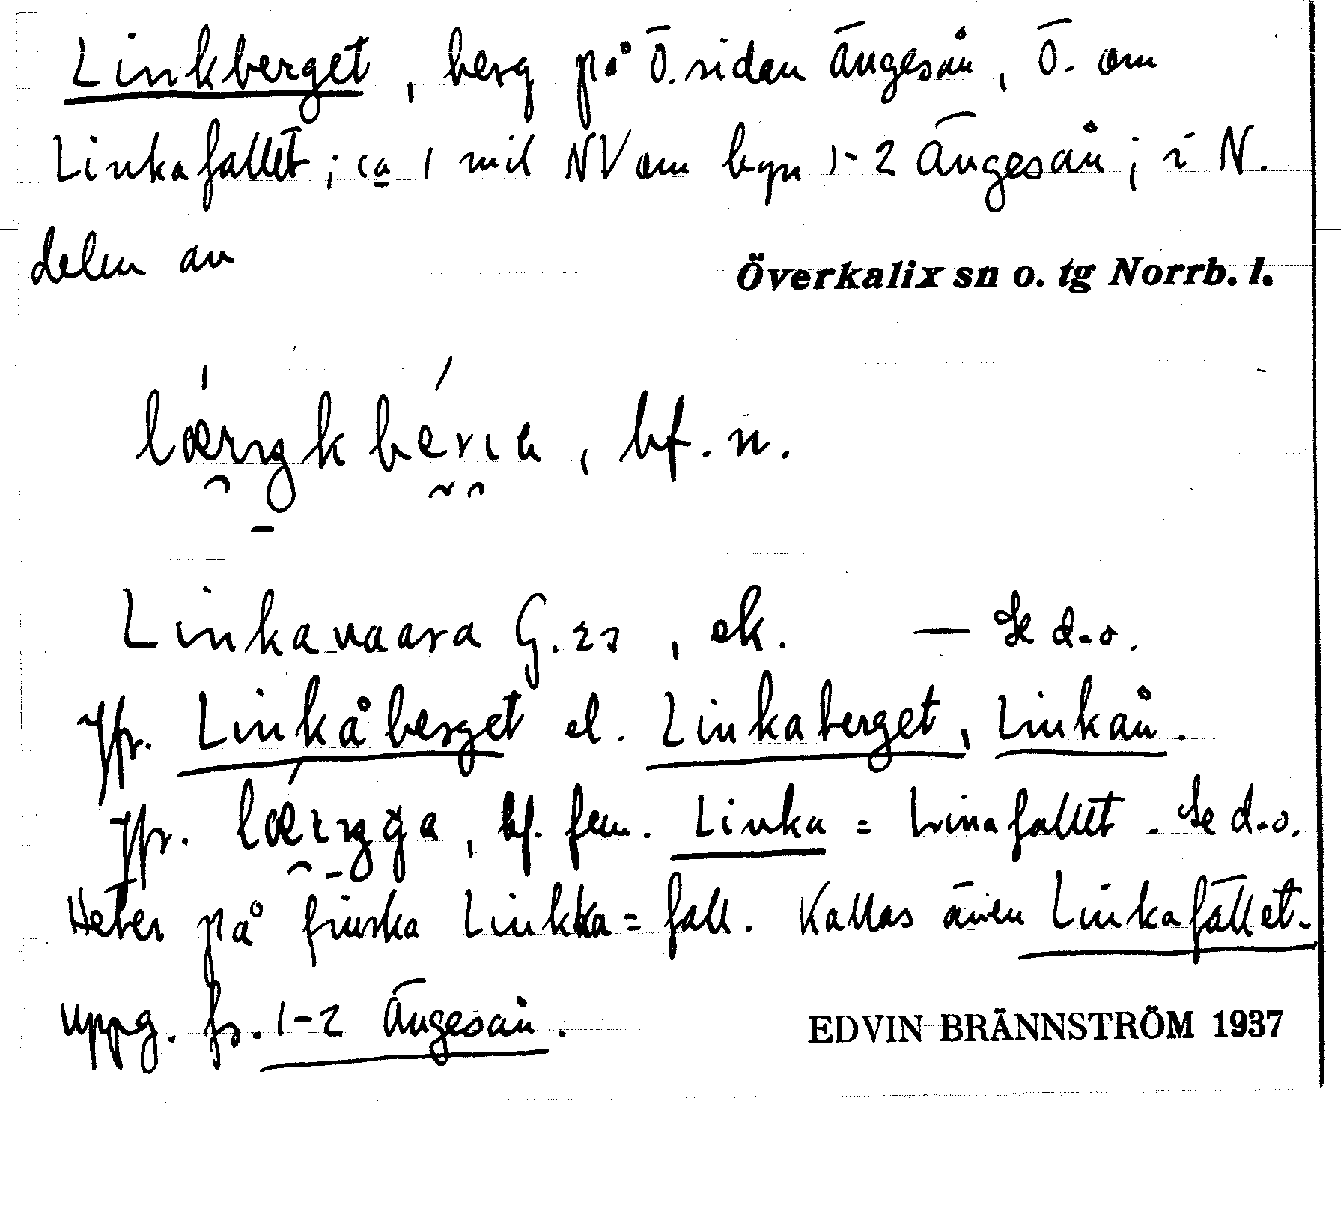 Linkberget, berg på Ö.sidan Ängesån, Ö. om
Linkafallet; ca 1 mil NV om byn 1-2 Ängesån; i N.
delen av
Överkalix sn o. tg Norrb. l.
bf. n.
Linkavaara G.23, ek. — Se d.o.
Jfr. Linkåberget el. Linkaberget, Linkån.
Jfr. bf. fem. Linka = Linafallet. Se d.o.
Heter på finska Linkka=fall. Kallas även Linkafallet.
uppg. fr. 1-2 Ängesån.
EDVIN BRÄNNSTRÖM 1937